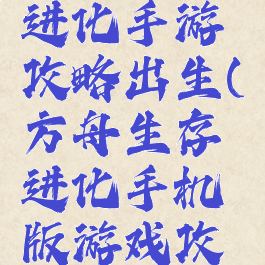 进化手游
攻略出生(
方舟生存
进化手机
版游戏攻